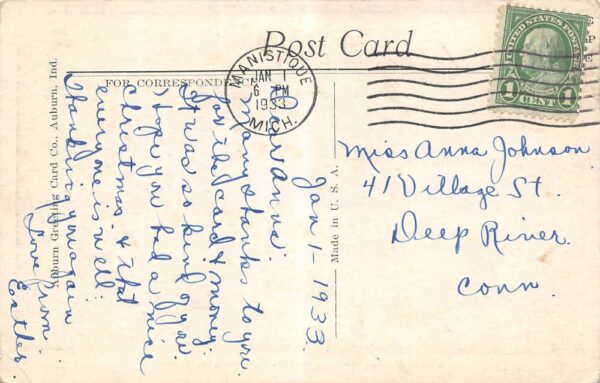 Post Card
FOR CORRESPONDENCE
MANISTIQUE
JAN 1
6 PM
1933
MICH.
UNITED STATES POSTAGE
1 CENT 1
Jan 1 - 1933
Dear Anna:
Many thanks to you
for the card & money.
It was so kind of you.
I hope you had a nice
Christmas & that
everyone is well.
Thanking you again
Love from
Esther.
Miss Anna Johnson
41 Village St.
Deep River.
Conn.
Made in U. S. A.
Auburn Greeting Card Co., Auburn, Ind.